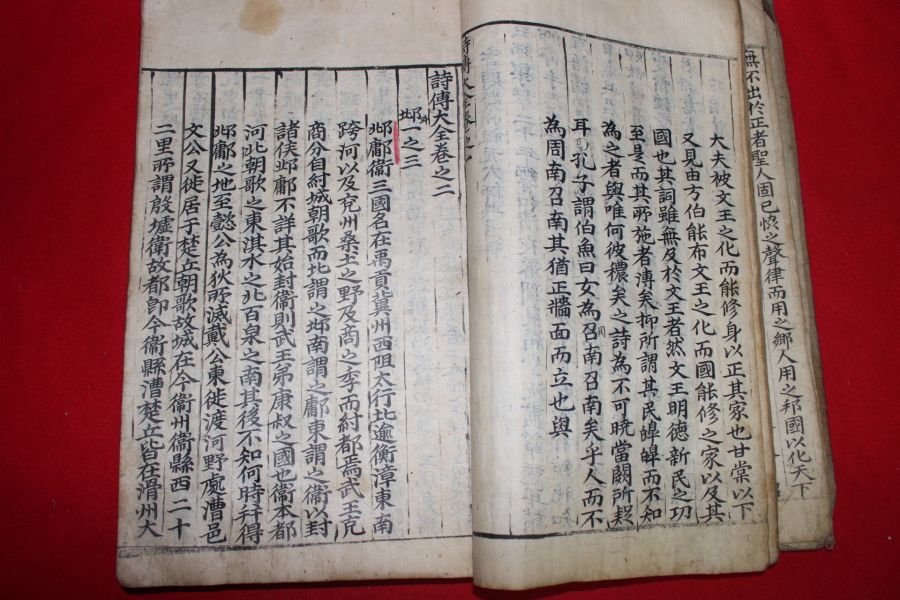 無不出於正者聖人固已恊之聲律而用之鄉人用之邦國以化天下
大夫被文王之化而能修身以正其家也甘棠以下
又見由方伯能布文王之化而國能修之家以及其
國也其詞雖無及於文王者然文王明德新民之功
至是而其所施者溥矣抑所謂其民皥皥而不知
為之者與唯何彼穠矣之詩為不可曉當闕所疑
耳孔子謂伯魚曰女為周南召南矣乎人而不
為周南召南其猶正牆面而立也與
詩傳大全卷之二
邶一之三
邶鄘衞三國名在禹貢冀州西阻太行北逾衡漳東南
跨河以及兖州桑土之野及商之季而紂都焉武王克
商分自紂城朝歌而北謂之邶南謂之鄘東謂之衞以封
諸侯邶鄘不詳其始封衞則武王弟康叔之國也衞本都
河北朝歌之東淇水之北百泉之南其後不知何時并得
邶鄘之地至懿公為狄所滅戴公東徙渡河野處漕邑
文公又徙居于楚丘朝歌故城在今衞州衞縣西二十
二里所謂殷墟衞故都即今衞縣漕楚丘皆在滑州大